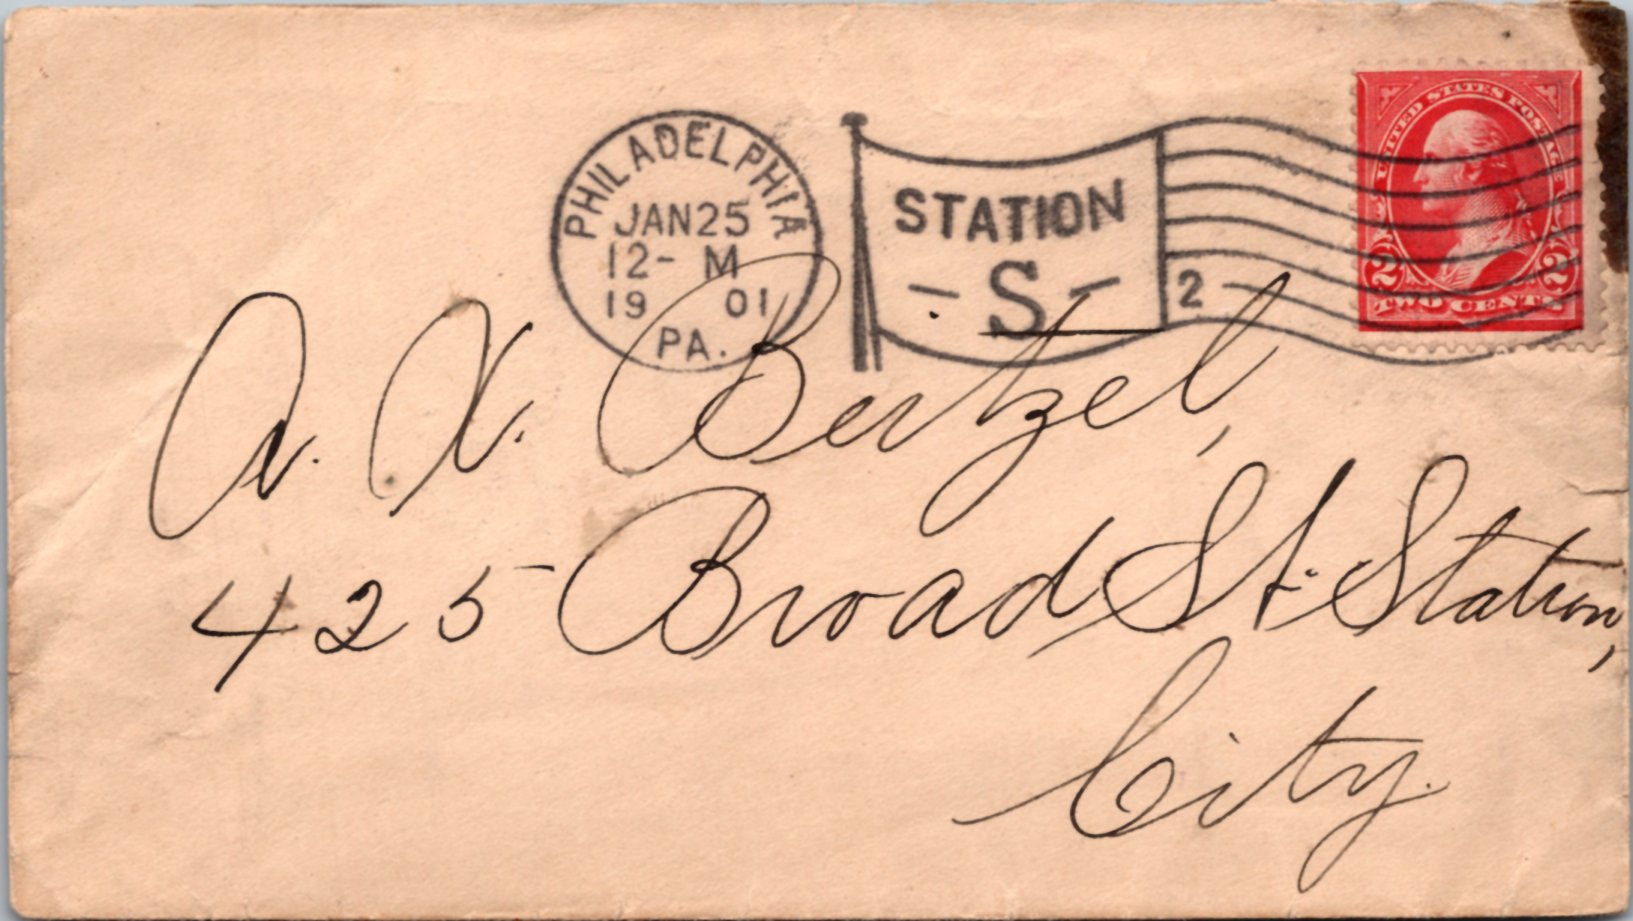 PHILADELPHIA
JAN 25
12- M
19 01
PA.
STATION
- S -
2
UNITED STATES POSTAGE
2 2
TWO CENTS
Bertzel,
425 Broad St. Station,
City.